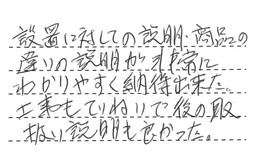 設置に対しての説明、商品の
違いの説明が非常に
わかりやすく納得出来た。
工事もていねいで後の取
扱い説明も良かった。